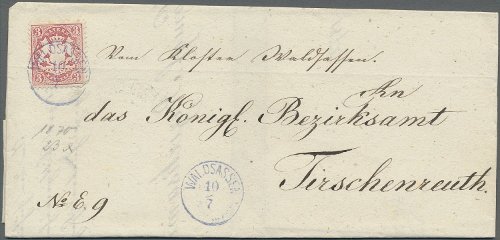 3 3
WALDSASSEN
10
Vom Kloster Waldsassen.
An
das Königl. Bezirksamt
Tirschenreuth.
1870
23
WALDSASSEN
10
7
No E. 9